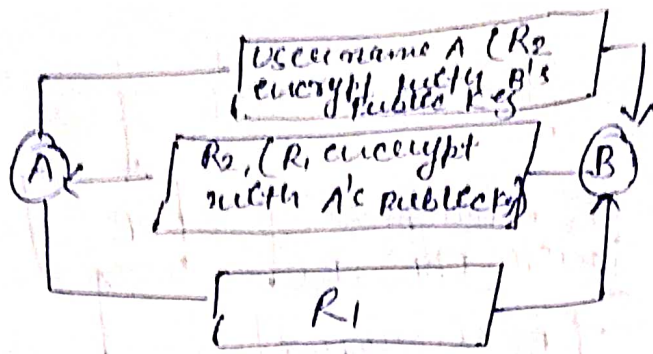 username A (R2
encrypt with B's
public key
A
R2, (R1 encrypt
with A's public key)
B
R1